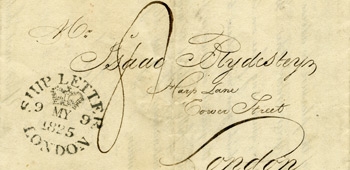 Mr.
Isaac
Harp Lane
Tower Street
London
SHIP LETTER
9 MY 9
1825
LONDON
8